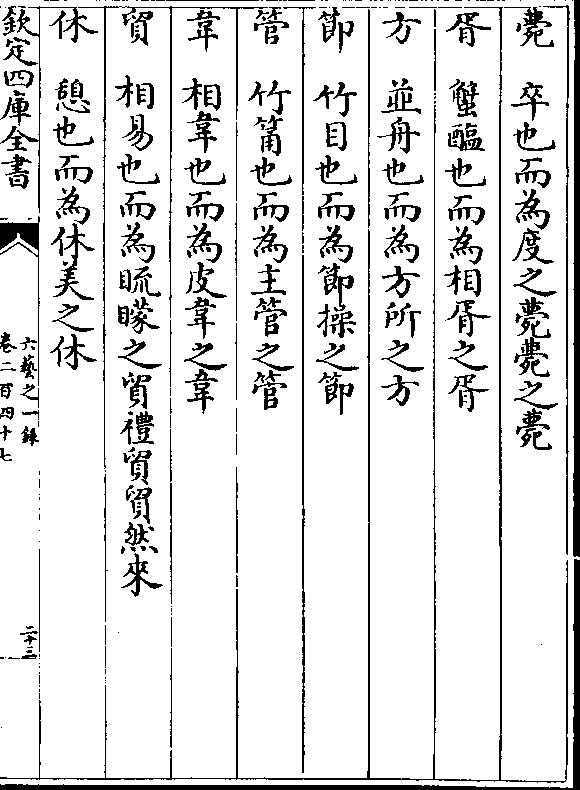 薨　卒也而為度之薨薨之薨
胥　蟹醢也而為相胥之胥
方　並舟也而為方所之方
節　竹目也而為節操之節
管　竹筩也而為主管之管
韋　相韋也而為皮韋之韋
貿　相易也而為䀮矇之貿禮貿貿然來
休　憩也而為休美之休
欽定四庫全書
六藝之一錄
卷二百四十七
二十三